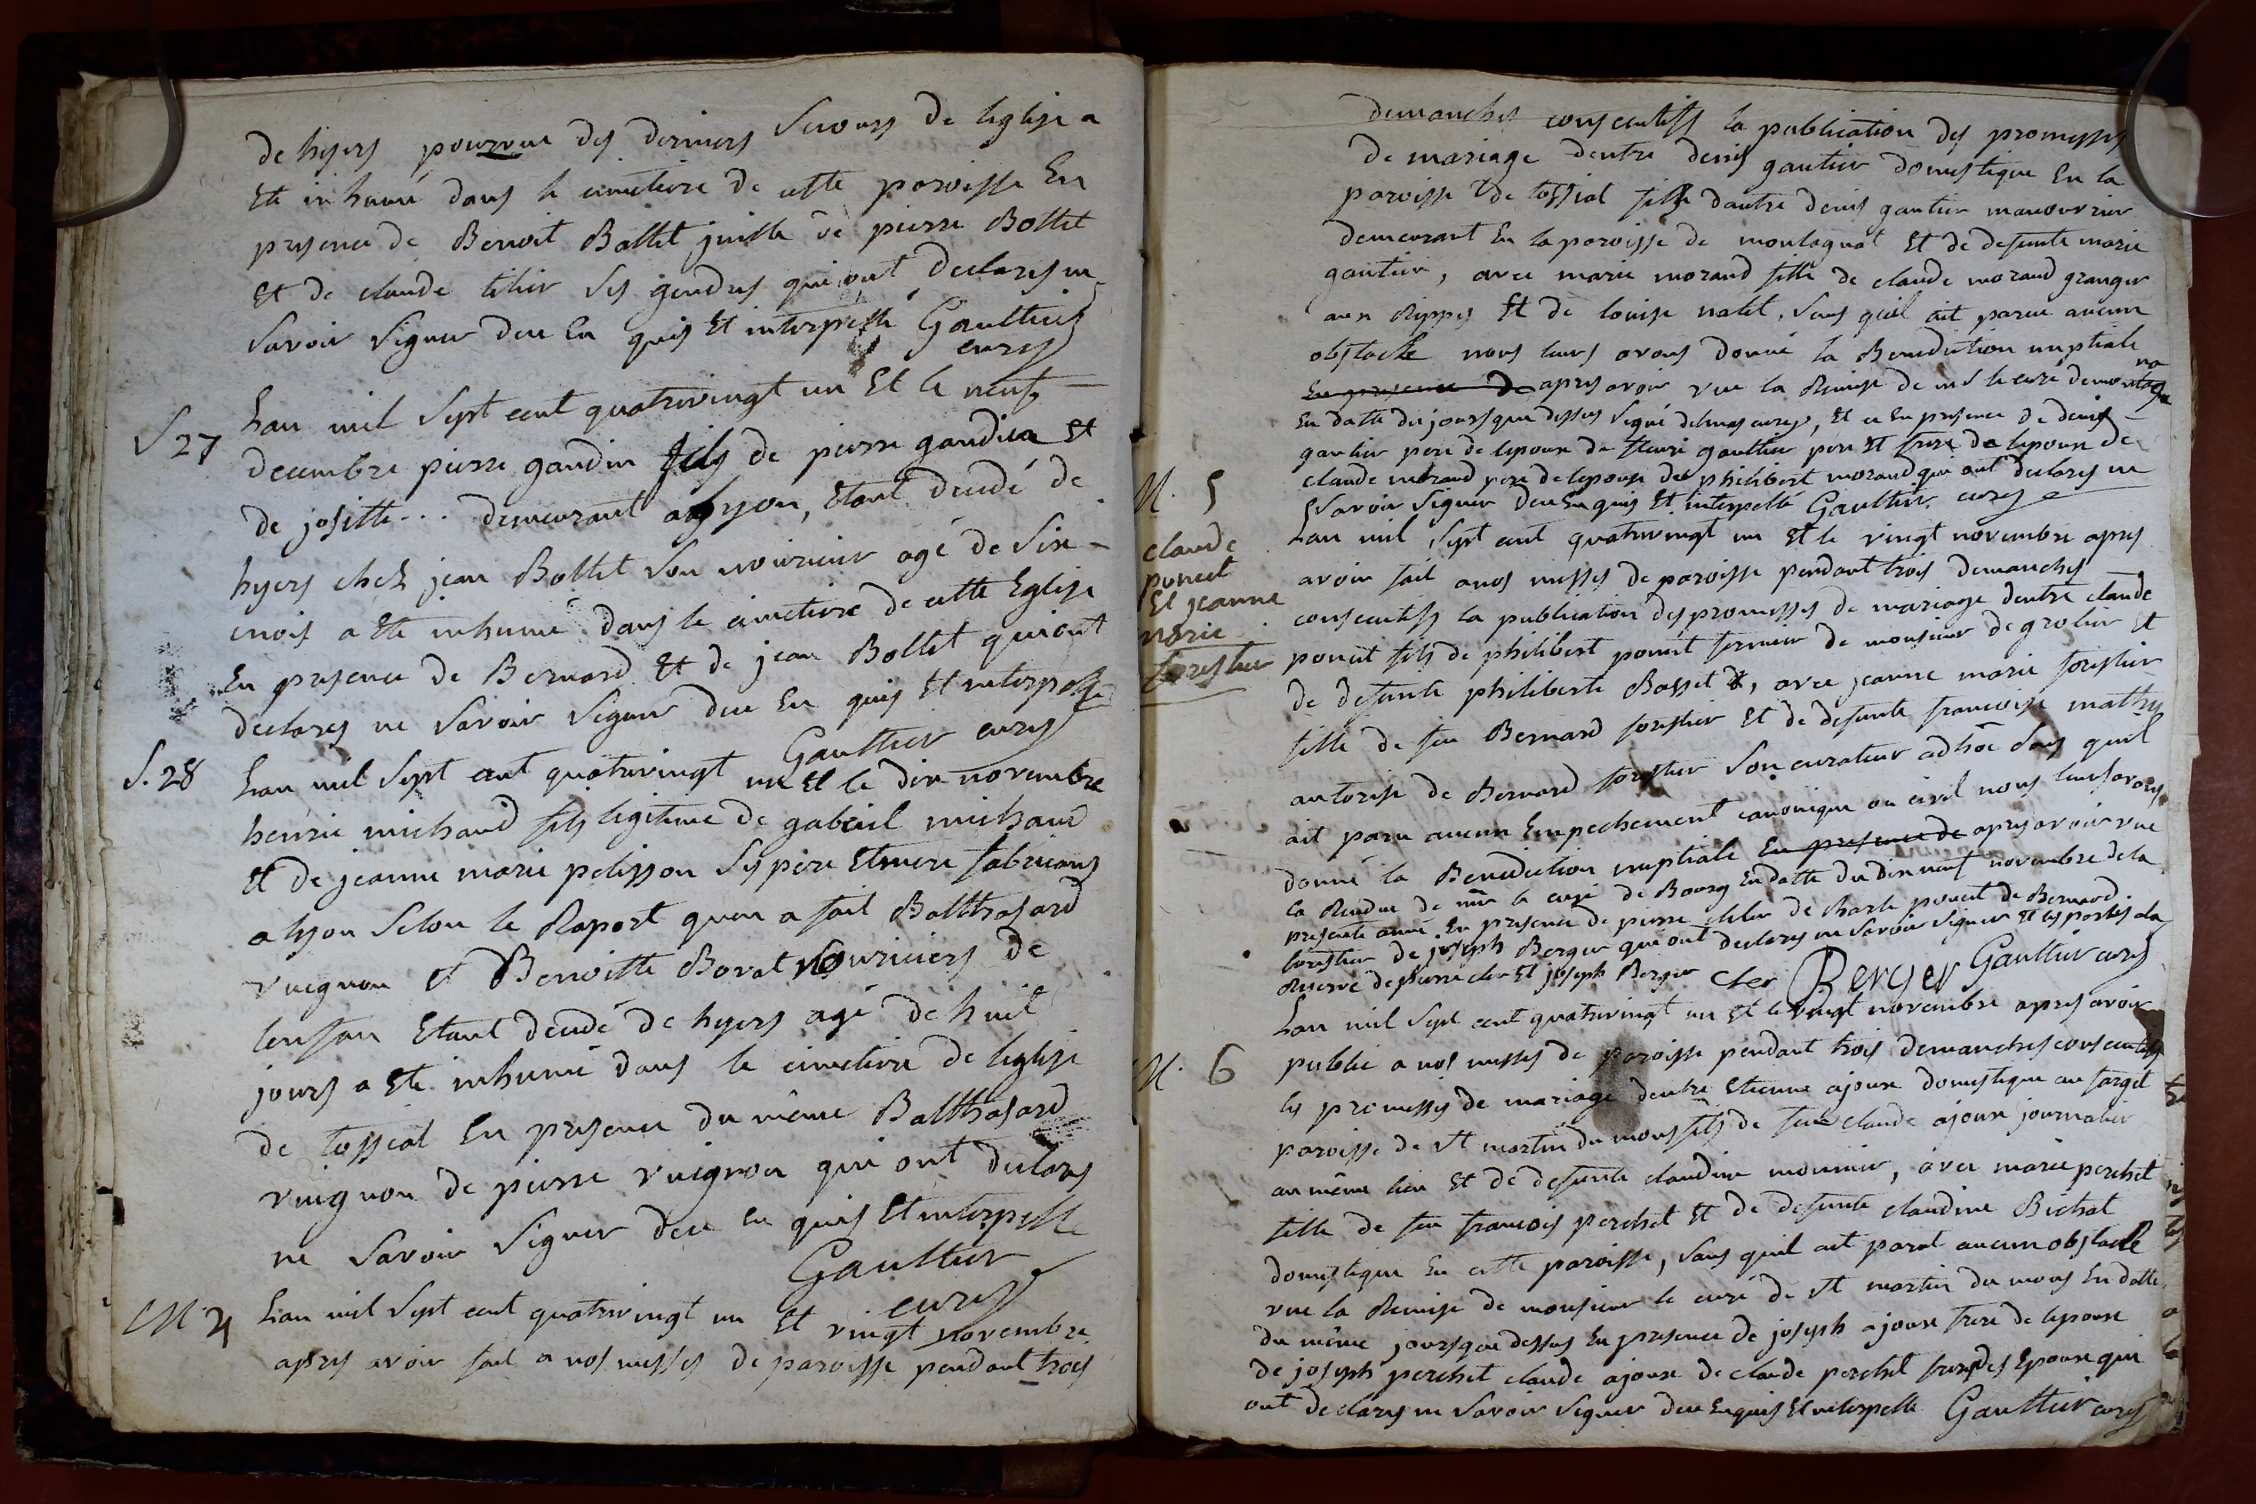 de hyers pourvue des derniers secours de leglise a
Eté inhumé dans le cimetiere de cette paroisse En
presence de Benoit Bollet de pierre Bollet
Et de claude ses gendres qui ont declares ne
savoir signer deu En quis Et interpellé Gaultier
curé
S 27
Lan mil sept cent quatrevingt un Et le neuf
decembre pierre gaudin fils de pierre gaudin Et
de josette... demeurant a lyon, Etant decedé de
hyers chez jean Bollet son nouricier agé de six
mois a Eté inhumé dans le cimetiere de cette Eglise
En presence de Bernard Et de jean Bollet qui ont
declares ne savoir signer deu En quis Et interpellé
Gaultier curé
S. 28
Lan mil sept cent quatrevingt un Et le dix novembre
henrie michaud fils legitime de gabriel michaud
Et de jeanne marie pelisson ses pere Et mere fabricans
a lyon selon le Raport quen a fait Balthasard
vuignon et Benoitte Borat Nouriciers de
lenfan Etant decedé de hyers agé de huit
jours a Eté inhumé dans le cimetiere de leglise
de tossiat En presence du même Balthasard
vuignon de pierre vuignon qui ont declares
ne savoir signer deu En quis Et interpellé
Gaultier
curé
M 4
Lan mil sept cent quatrevingt un Et vingt novembre
apres avoir fait a nos messes de paroisse pendant trois
demanches consecutifs la publication des promesses
de mariage dentre denis gautier domestique En la
paroisse de tossiat fils dautre denis gautier manouvrier
demeurant En la paroisse de montagnat Et de defunte marie
gautier, avec marie morand fille de claude morand granger
aux Rippes Et de louise natet, sans quil ait parru aucun
obstacle nous leurs avons donné la Benediction nuptiale
En presence de apres avoir vue la Remise de mr le curé de montagna
En datte du jours que dessus signé delmas curé, Et ce En presence de denis
gautier pere de lepoux de fleuri gaultier pere Et frere de lepoux de
claude morand pere de lepouse de philibert morand qui ont declares ne
savoir signer deu En quis Et interpellé Gaultier curé
M. 5
claude
poncet
Et jeanne
marie
forestier
Lan mil sept cent quatrevingt un Et le vingt novembre apres
avoir fait a nos messes de paroisse pendant trois demanches
consecutifs la publication des promesses de mariage dentre claude
poncet fils de philibert poncet fermier de monsieur de grolier Et
de defunte philiberte Bosset, avec jeanne marie forestier
fille de feu Bernard forestier Et de defunte francoise mathy
autorise de Bernard forestier son curateur ad hoc sans quil
ait paru aucun Empechement canonique ou civil nous leurs avons
donné la Benediction nuptiale En presence de apres avoir vue
la Remise de mr le curé de Bourg En datte du dix neuf novembre de la
presente année En presence de pierre cler de charle poncet de Bernard
forestier de joseph Berger qui ont declares ne savoir signer Et les parties a la
Reserve de pierre cler Et joseph Berger Cler Berger Gaultier curé
M. 6
Lan mil sept cent quatrevingt un Et le vingt novembre apres avoir
publié a nos messes de paroisse pendant trois demanches consecutifs
les promesses de mariage dentre Etienne ajoux domestique au farget
paroisse de st martin du mons fils de feu claude ajoux journalier
au même lieu Et de defunte claudine monnier, avec marie perchet
fille de feu francois perchet Et de defunte claudine Bichat
domestique En cette paroisse, sans quil ait parut aucun obstacle
vue la Remise de monsieur le curé de st martin du mons En datte
du même jours que dessus En presence de joseph ajoux frere de lepoux
de joseph perchet claude ajoux de claude perchet freres des Epoux qui
ont declares ne savoir signer deu Enquis Et interpellé Gaultier curé